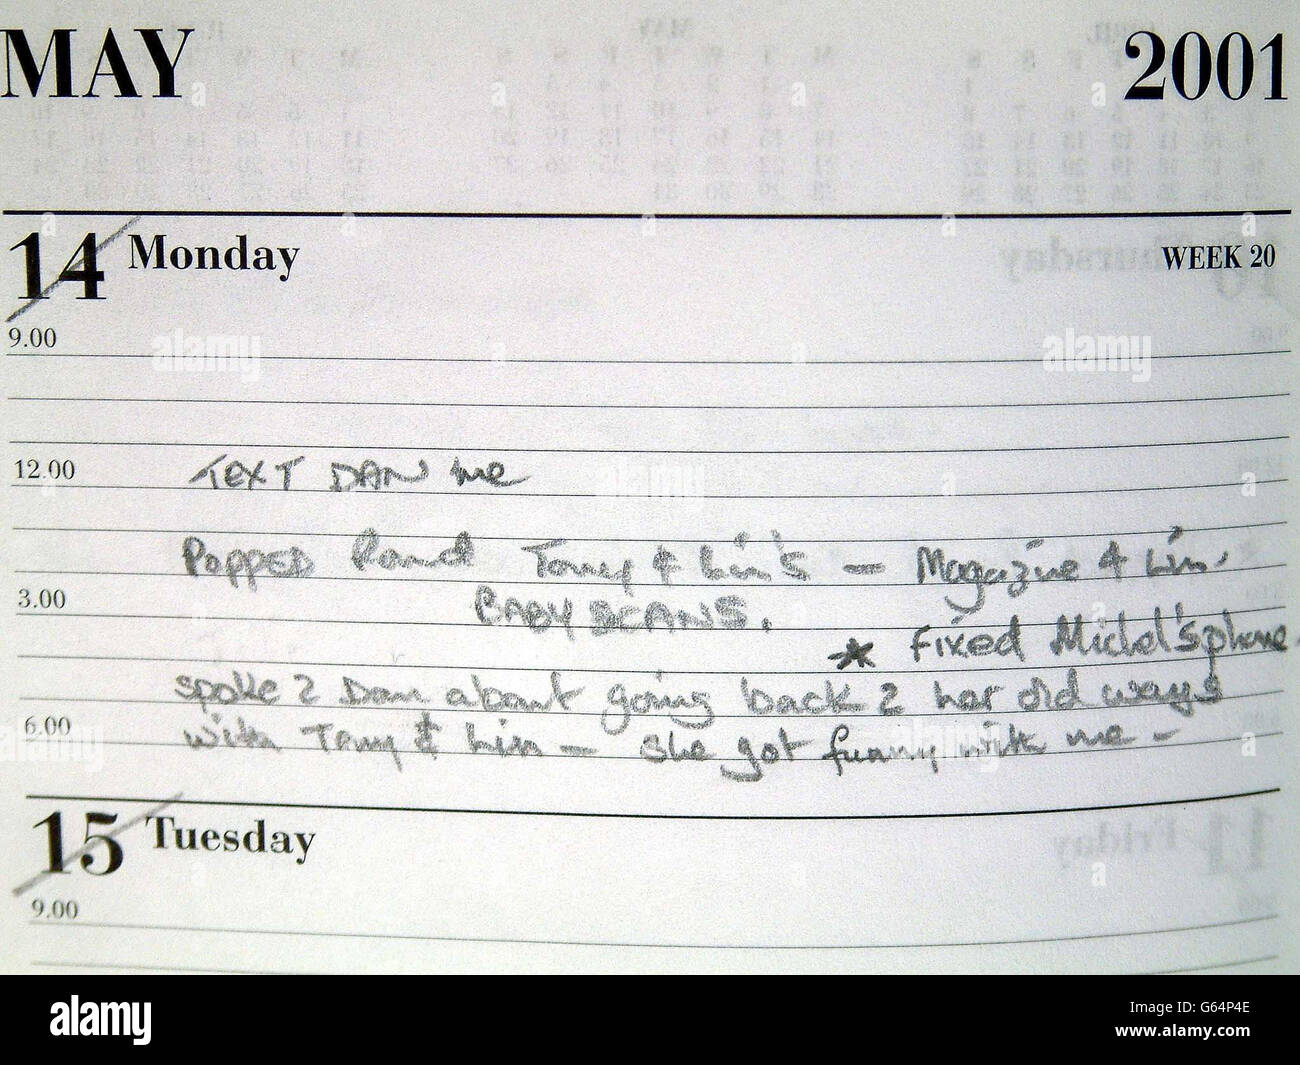 MAY 2001
14 Monday WEEK 20
9.00
12.00 TEXT DAN me
POPPED Round Tony & Lin's — Magazine 4 Lin.
3.00 BABY BEANS.
* Fixed Michel's phone
spoke 2 Dan about going back 2 her old ways
6.00 with Tony & Lin — She got funny with me —
15 Tuesday
9.00
alamy
Image ID: G64P4E
www.alamy.com